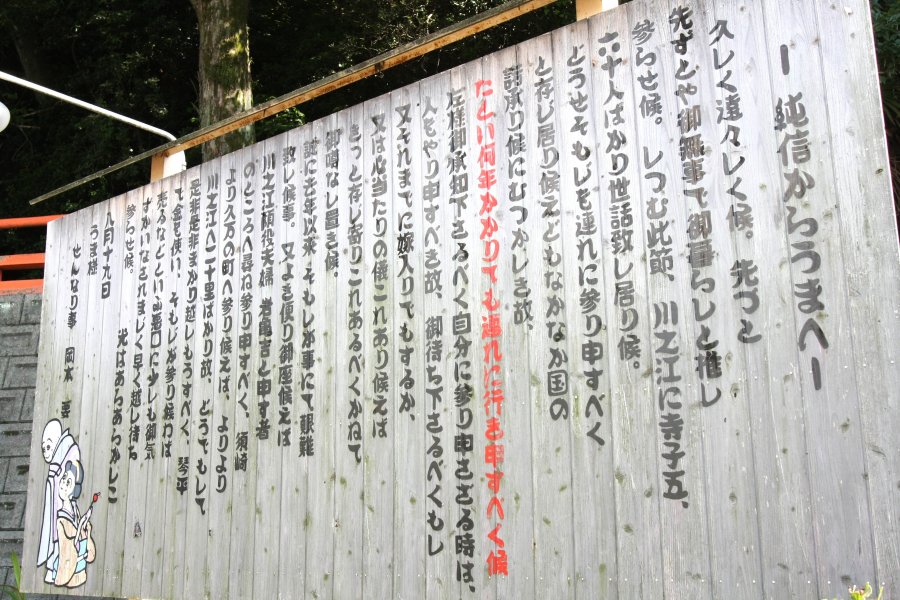 ― 純信からうまへ ―
久しく遠々しく候。先づと
先ずとや御無事で御暮らしと推し
参らせ候。しつむ此節、川之江に寺子五、
六十人ばかり世話致し居り候。
どうせそもじを連れに参り申すべく
と存じ居り候えどもなかなか国の
詰承り候にむつかしき故、
たとい何年かかりても連れに行き申すべく候
左様御承知下さるべく自分に参り申さざる時は、
人をやり申すべき故、御待ち下さるべくもし
又それまでに嫁入りでもするか、
又は心当たりの儀これあり候えば
きっと存じ寄りこれあるべくかねて
御噂なし置き候。
誠に去年以来、そもじが事にて艱難
致し候事。又よき便り御座候えば
川之江頼役夫婦、岩亀吉と申す者
のところへ尋ね参り申すべく、須崎
より久万の町へ参り候えば、よりより
川之江へ二十里ばかり故、どうでもして
是非是非まかり越しもうすべく、琴平
て金を使い、そもじが参り候わば
売るなどという悪口に少しも御気
ずかいなされまじく早く越し待ち
参らせ候。
先はあらあらかしこ
八月十九日
うま様
せんなり事 岡本 要